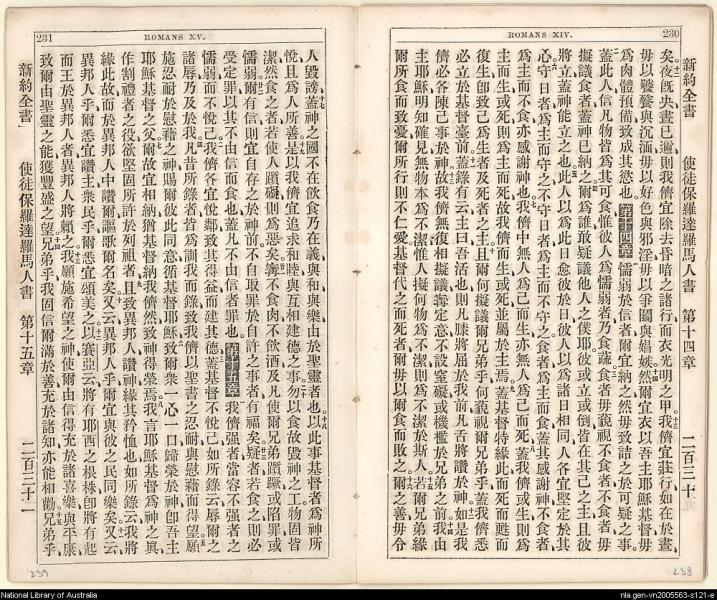 230
ROMANS XIV.
新約全書 使徒保羅達羅馬人書 第十四章 二百三十
矣夜旣央晝已邇則我儕宜除去昏暗之諸行而衣光明之甲我儕宜莊行如在於晝
毋以饕餮與沉湎毋以好色與邪淫毋以爭鬬與媢嫉然爾宜衣以吾主耶穌基督毋
爲肉體預備致成其慾也第十四章懦弱於信者爾宜納之然毋致詰之於可疑之事
蓋此人信凡物皆爲其可食惟彼人爲懦弱者乃食蔬食者毋藐視不食者不食者毋
擬議食者蓋神已納之爾爲誰敢疑議他人之僕耶彼或立或倒皆在其己之主且彼
將立蓋神能立之也此人以爲此日愈於彼日彼人以爲諸日相同人各宜堅定於其
心守日者爲主而守之不守日者爲主而不守之食者爲主而食蓋其感謝神不食者
爲主而不食亦感謝神也我儕中無人爲己而生亦無人爲己而死蓋我儕或生則爲
主而生或死則爲主而死故我儕而生或死並屬於主焉蓋基督特緣此而死而甦而
復生卽致己爲生者及死者之主且爾何擬議爾兄弟乎何藐視爾兄弟乎蓋我儕悉
必立於基督臺前蓋錄有云主曰吾活也則凡膝將屈於我前凡舌將讚於神如是我
儕必各陳己事於神故我儕無復相擬議寧定意不設窒礙或機檻於兄弟之前我由
主耶穌明知確見無物本爲不潔惟人擬何物爲不潔則爲不潔於斯人若爾兄弟緣
爾所食而致憂爾所行則不仁愛基督代之而死者爾毋以爾食而敗之爾之善毋令
238
231
ROMANS XV.
人毀謗蓋神之國不在飲食乃在義與和與樂由於聖靈者也以此事基督者爲神所
悅且爲人所善是以我儕宜追求和睦與互相建德之事勿以食故毀神之工物固皆
潔然食之者若使人躓礙則爲惡矣寧不食肉不飲酒及凡使爾兄弟躓蹶或陷罪或
懦弱爾有信則宜自存之於神前不自取罪於自許之事者有福矣疑者若食之則必
受定罪以其不由信而食也蓋凡不由信者罪也第十五章我儕強者當容不強者之
懦弱而不悅己我儕各宜悅鄰致其得益而建其德蓋基督不悅己如所錄云辱爾之
諸辱乃及於我凡昔所錄者皆爲訓我而錄致我儕以聖書之忍耐與慰藉而得望願
施忍耐於慰藉之神賜爾彼此同意循基督耶穌致爾衆一心一口歸榮於神卽吾主
耶穌基督之父爾故宜相納猶基督納我儕然致神得榮焉我言耶穌基督爲神之眞
作割禮者之役欲堅固所許於列祖者且致異邦人讚神緣其矜恤也如所錄云我將
緣此故而於異邦人中讚爾謳歌爾名矣又云異邦人乎爾宜與彼之民同樂矣又云
異邦人乎爾悉宜讚主衆民乎爾悉宜頌美之以賽亞云將有耶西之根株卽將有起
而王於異邦人者異邦人將賴之我願施希望之神使爾由信得充於諸喜樂與平康
致爾由聖靈之能獲豐盛之望兄弟乎我固信爾滿於善充於諸知亦能相勸兄弟乎
新約全書 使徒保羅達羅馬人書 第十五章 二百三十一
239
National Library of Australia
nla.gen-vn2005563-s121-e